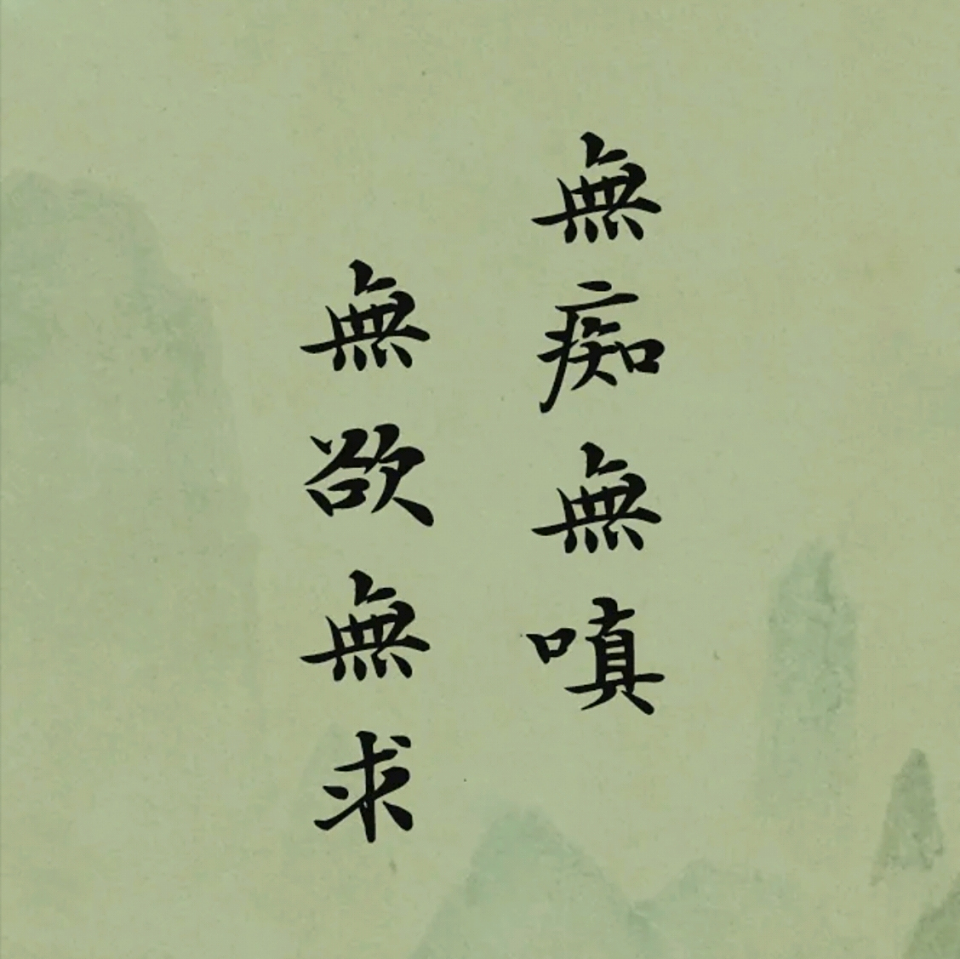 無痴無嗔
無欲無求